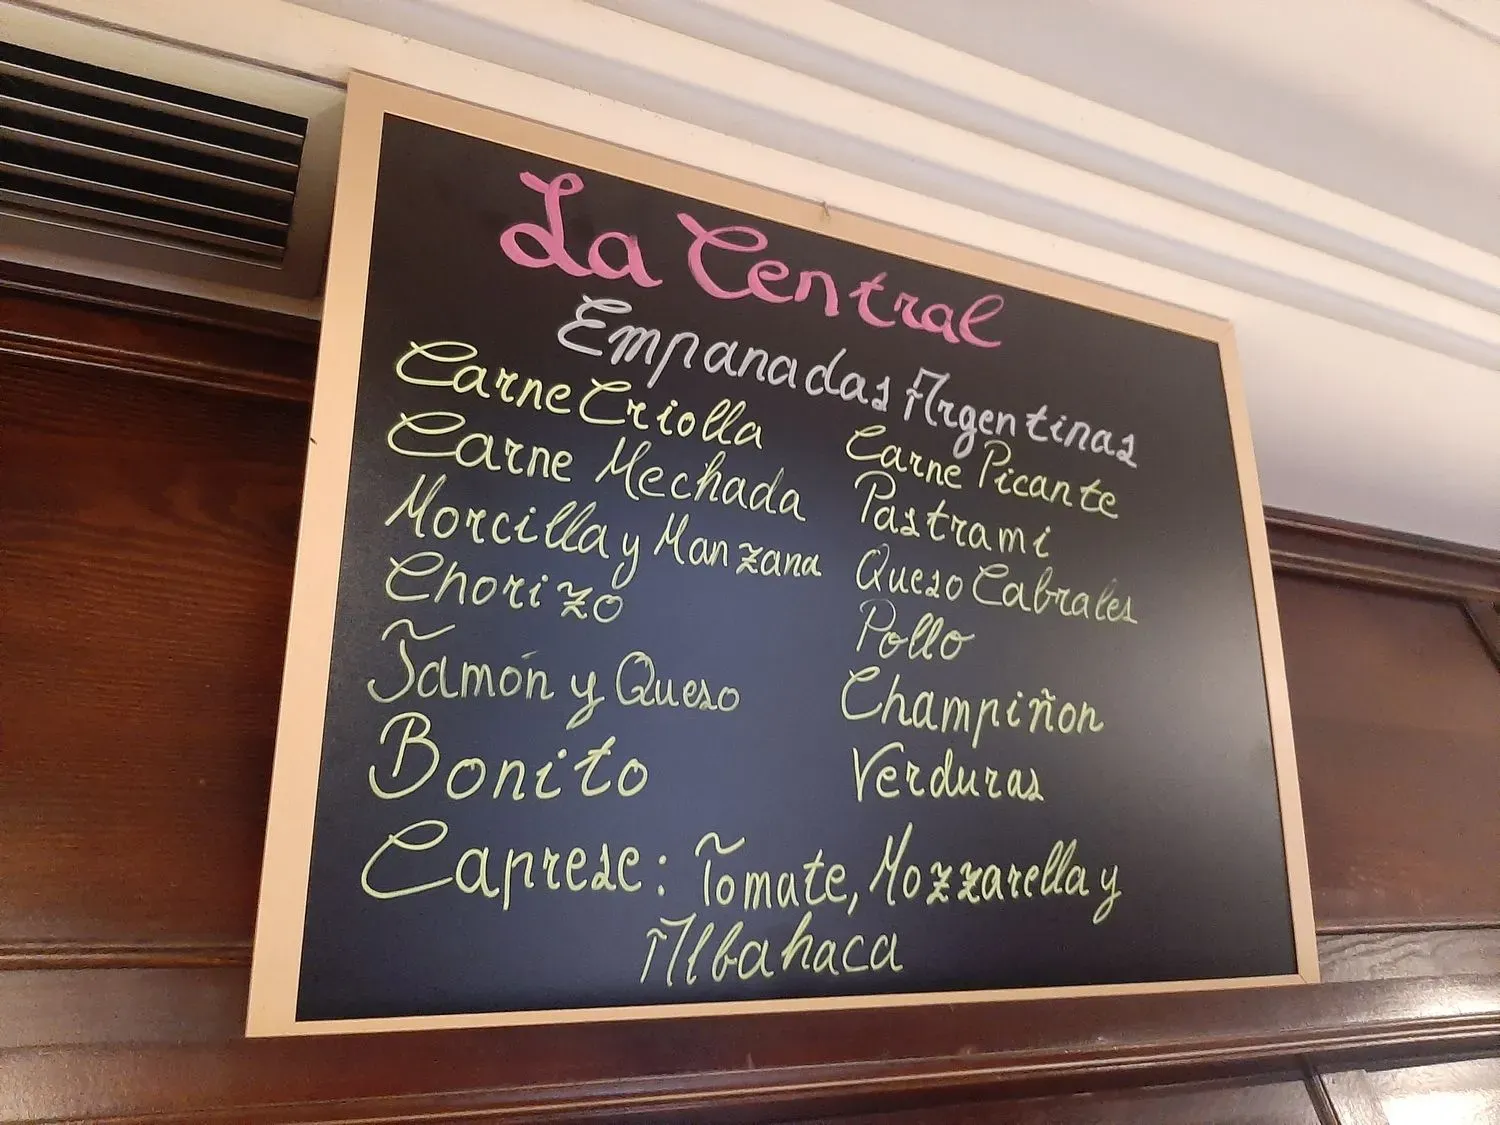 La Central
Empanadas Argentinas
Carne Criolla
Carne Mechada
Morcilla y Manzana
Chorizo
Jamón y Queso
Bonito
Carne Picante
Pastrami
Queso Cabrales
Pollo
Champiñon
Verduras
Caprese: Tomate, Mozzarella y
Albahaca